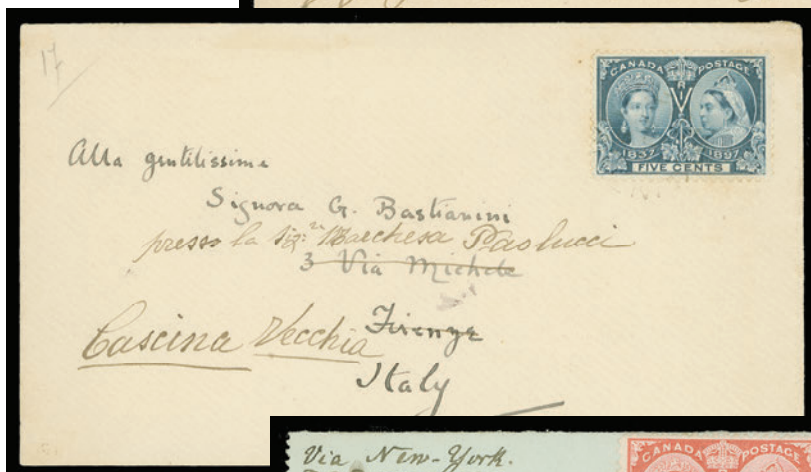 17
CANADA POSTAGE
1837 1897
FIVE CENTS
Alla gentilissima
Signora G. Bastianini
presso la Sig.ra Marchesa Paolucci
3 Via Michele
Firenze
Cascina Vecchia
Italy
Via New-York.
CANADA POSTAGE